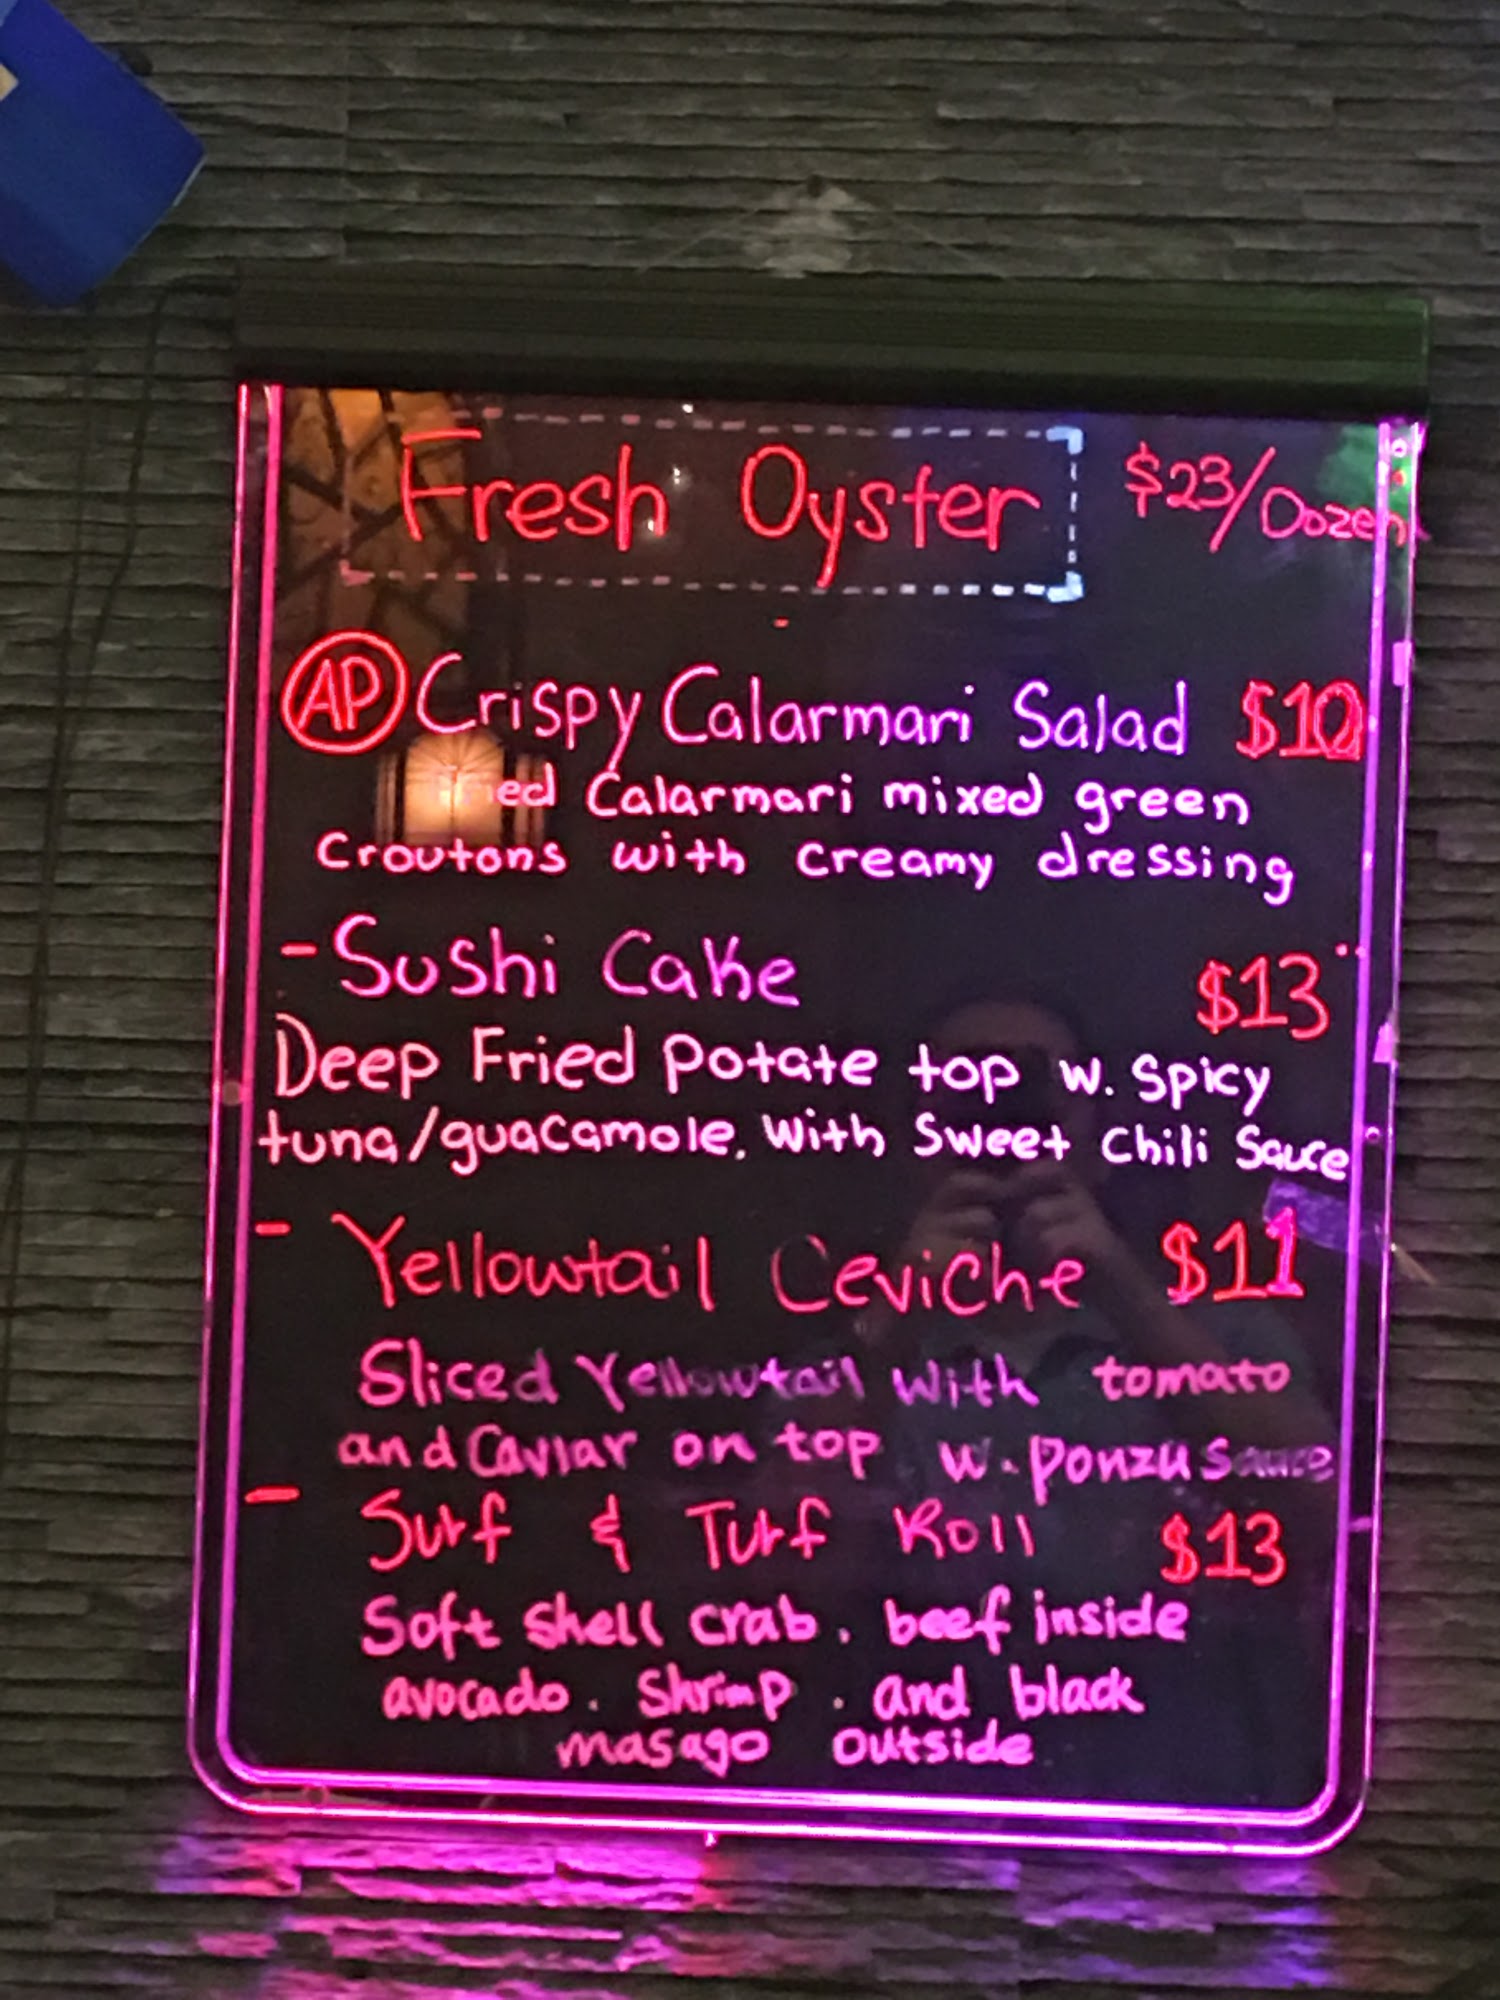 Fresh Oyster $23/Dozen
AP Crispy Calarmari Salad $10
Fried Calarmari mixed green
Croutons with creamy dressing
- Sushi Cake $13
Deep Fried Potate top w. Spicy
tuna/guacamole. With Sweet Chili Sauce
- Yellowtail Ceviche $11
Sliced Yellowtail With tomato
and Caviar on top w. ponzu sauce
- Surf & Turf Roll $13
Soft shell crab. beef inside
avocado. Shrimp. and black
masago outside